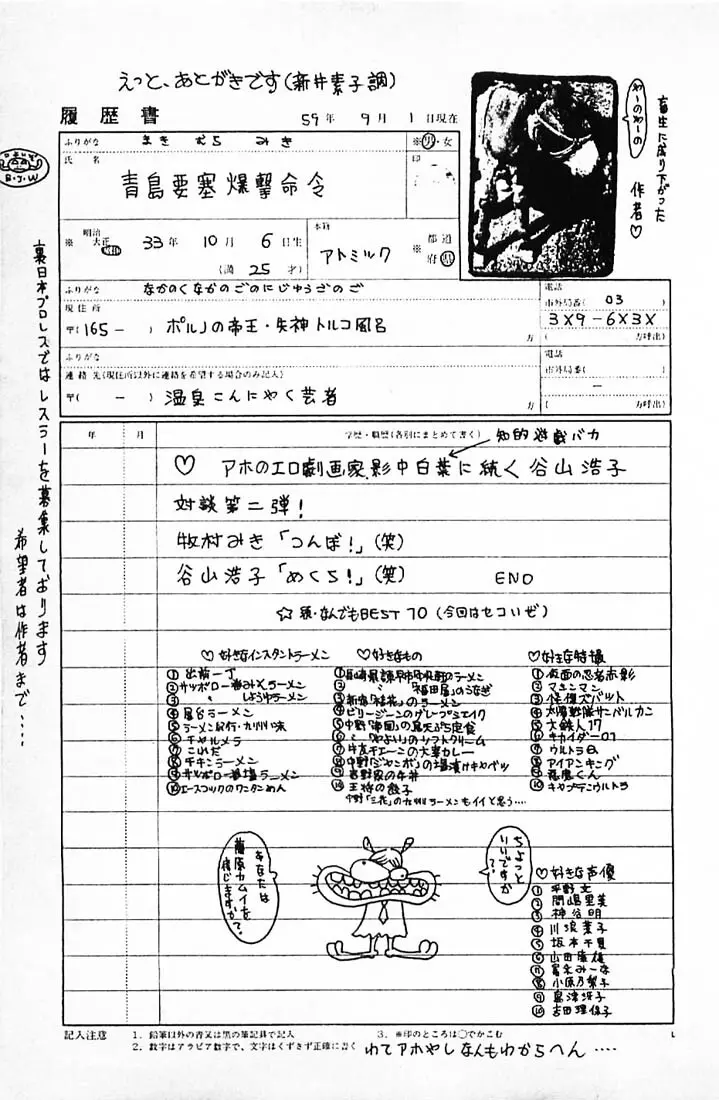 えっと、あとがきです(新井素子調)
履歴書
59年 9月 1日現在
ふりがな まき むら みき
※男・女
氏名
印
青島要塞爆撃命令
※ 明治 大正 昭和 33年 10月 6日生
(満 25 才)
本籍
アトミック
※ 都道府県
わーのわーの
畜生に成り下がった
作者♡
ふりがな なかのくなかのごのにじゅうごのご
現住所
〒(165- ) ポルノの帝王・失神トルコ風呂
方
電話
市外局番( 03
3X9-6X3X
(方呼出)
ふりがな
連絡先(現住所以外に連絡を希望する場合のみ記入)
〒( - ) 温泉こんにゃく芸者
方
電話
市外局番( )
(方呼出)
裏日本プロレスではレスラーを募集しております
希望者は作者まで‥‥
年 月 学歴・職歴(各別にまとめて書く)
知的遊戯バカ
♡ アホのエロ劇画家、影中白葉に続く谷山浩子
対談第二弾!
牧村みき「つんぼ!」(笑)
谷山浩子「めくら!」(笑) END
☆続・なんでもBEST10(今回はセコいぜ)
♡好きなインスタントラーメン
① 出前一丁
② サッポロ一番みそラーメン
③ 〃 しょうゆラーメン
④ 屋台ラーメン
⑤ ラーメン紀行・九州味
⑥ チャルメラ
⑦ これだ
⑧ チキンラーメン
⑨ サッポロ一番塩ラーメン
⑩ エースコックのワンタンめん
♡好きなもの
② 〃 「福田屋」のうなぎ
③ 新宿「桂花」のラーメン
④ ビリージーンのグレープシェイク
⑥ 〃 「やよい」のソフトクリーム
⑦ 牛友チェーンの大妻カレー
⑧ 中野「ジャンボ」の塩漬けキャベツ
⑨ 吉野家の牛丼
⑩ 王将の餃子
中野「三花」の九州ラーメンもイイと思う‥‥
♡好きな特撮
① 仮面の忍者赤影
② マシンマン
③ 怪傑ズバット
④ 太陽戦隊サンバルカン
⑤ 大鉄人17
⑥ キカイダー01
⑦ ウルトラQ
⑧ アイアンキング
⑨ 悪魔くん
⑩ キャプテンウルトラ
あなたは藤原カムイを信じますか?
ちょっといいですか?
♡好きな声優
① 平野文
② 間嶋里美
③ 神谷明
④ 川浪葉子
⑤ 坂本千夏
⑥ 山田康雄
⑦ 富永みーな
⑧ 小原乃梨子
⑨ 島津冴子
⑩ 吉田理保子
記入注意 1. 鉛筆以外の青又は黒の筆記具で記入 3. ※印のところは○でかこむ
2. 数字はアラビア数字で、文字はくずさず正確に書く
わてアホやしなんもわからへん‥‥